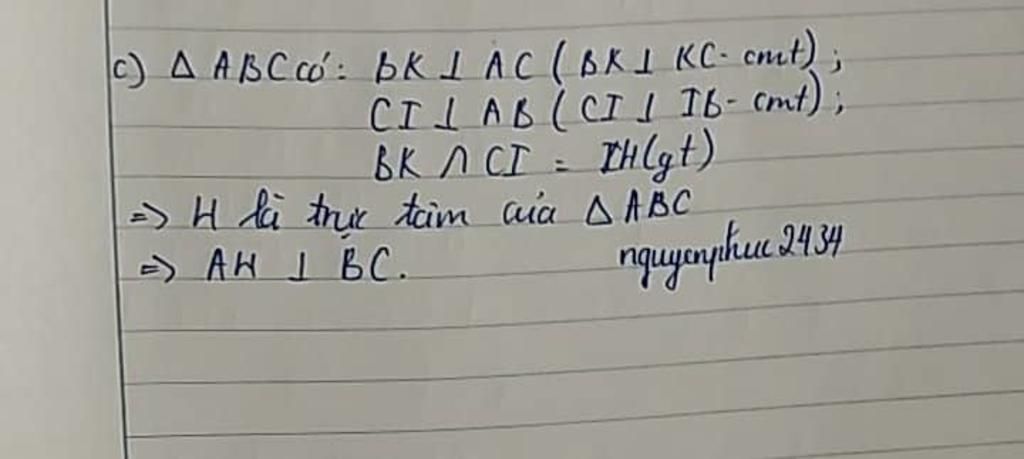 c) Δ ABC có: BK ⊥ AC ( BK ⊥ KC - cmt) ;
CI ⊥ AB ( CI ⊥ IB - cmt) ;
BK ∩ CI = IH (gt)
=> H là trực tâm của Δ ABC
=> AH ⊥ BC.
nguyenphuc2434